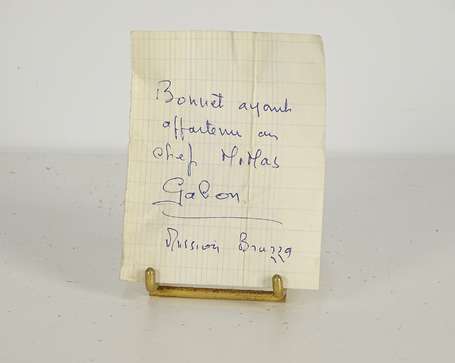 Bonnet ayant
appartenu au
chef M'Mas
Gabon
Mission Brazza